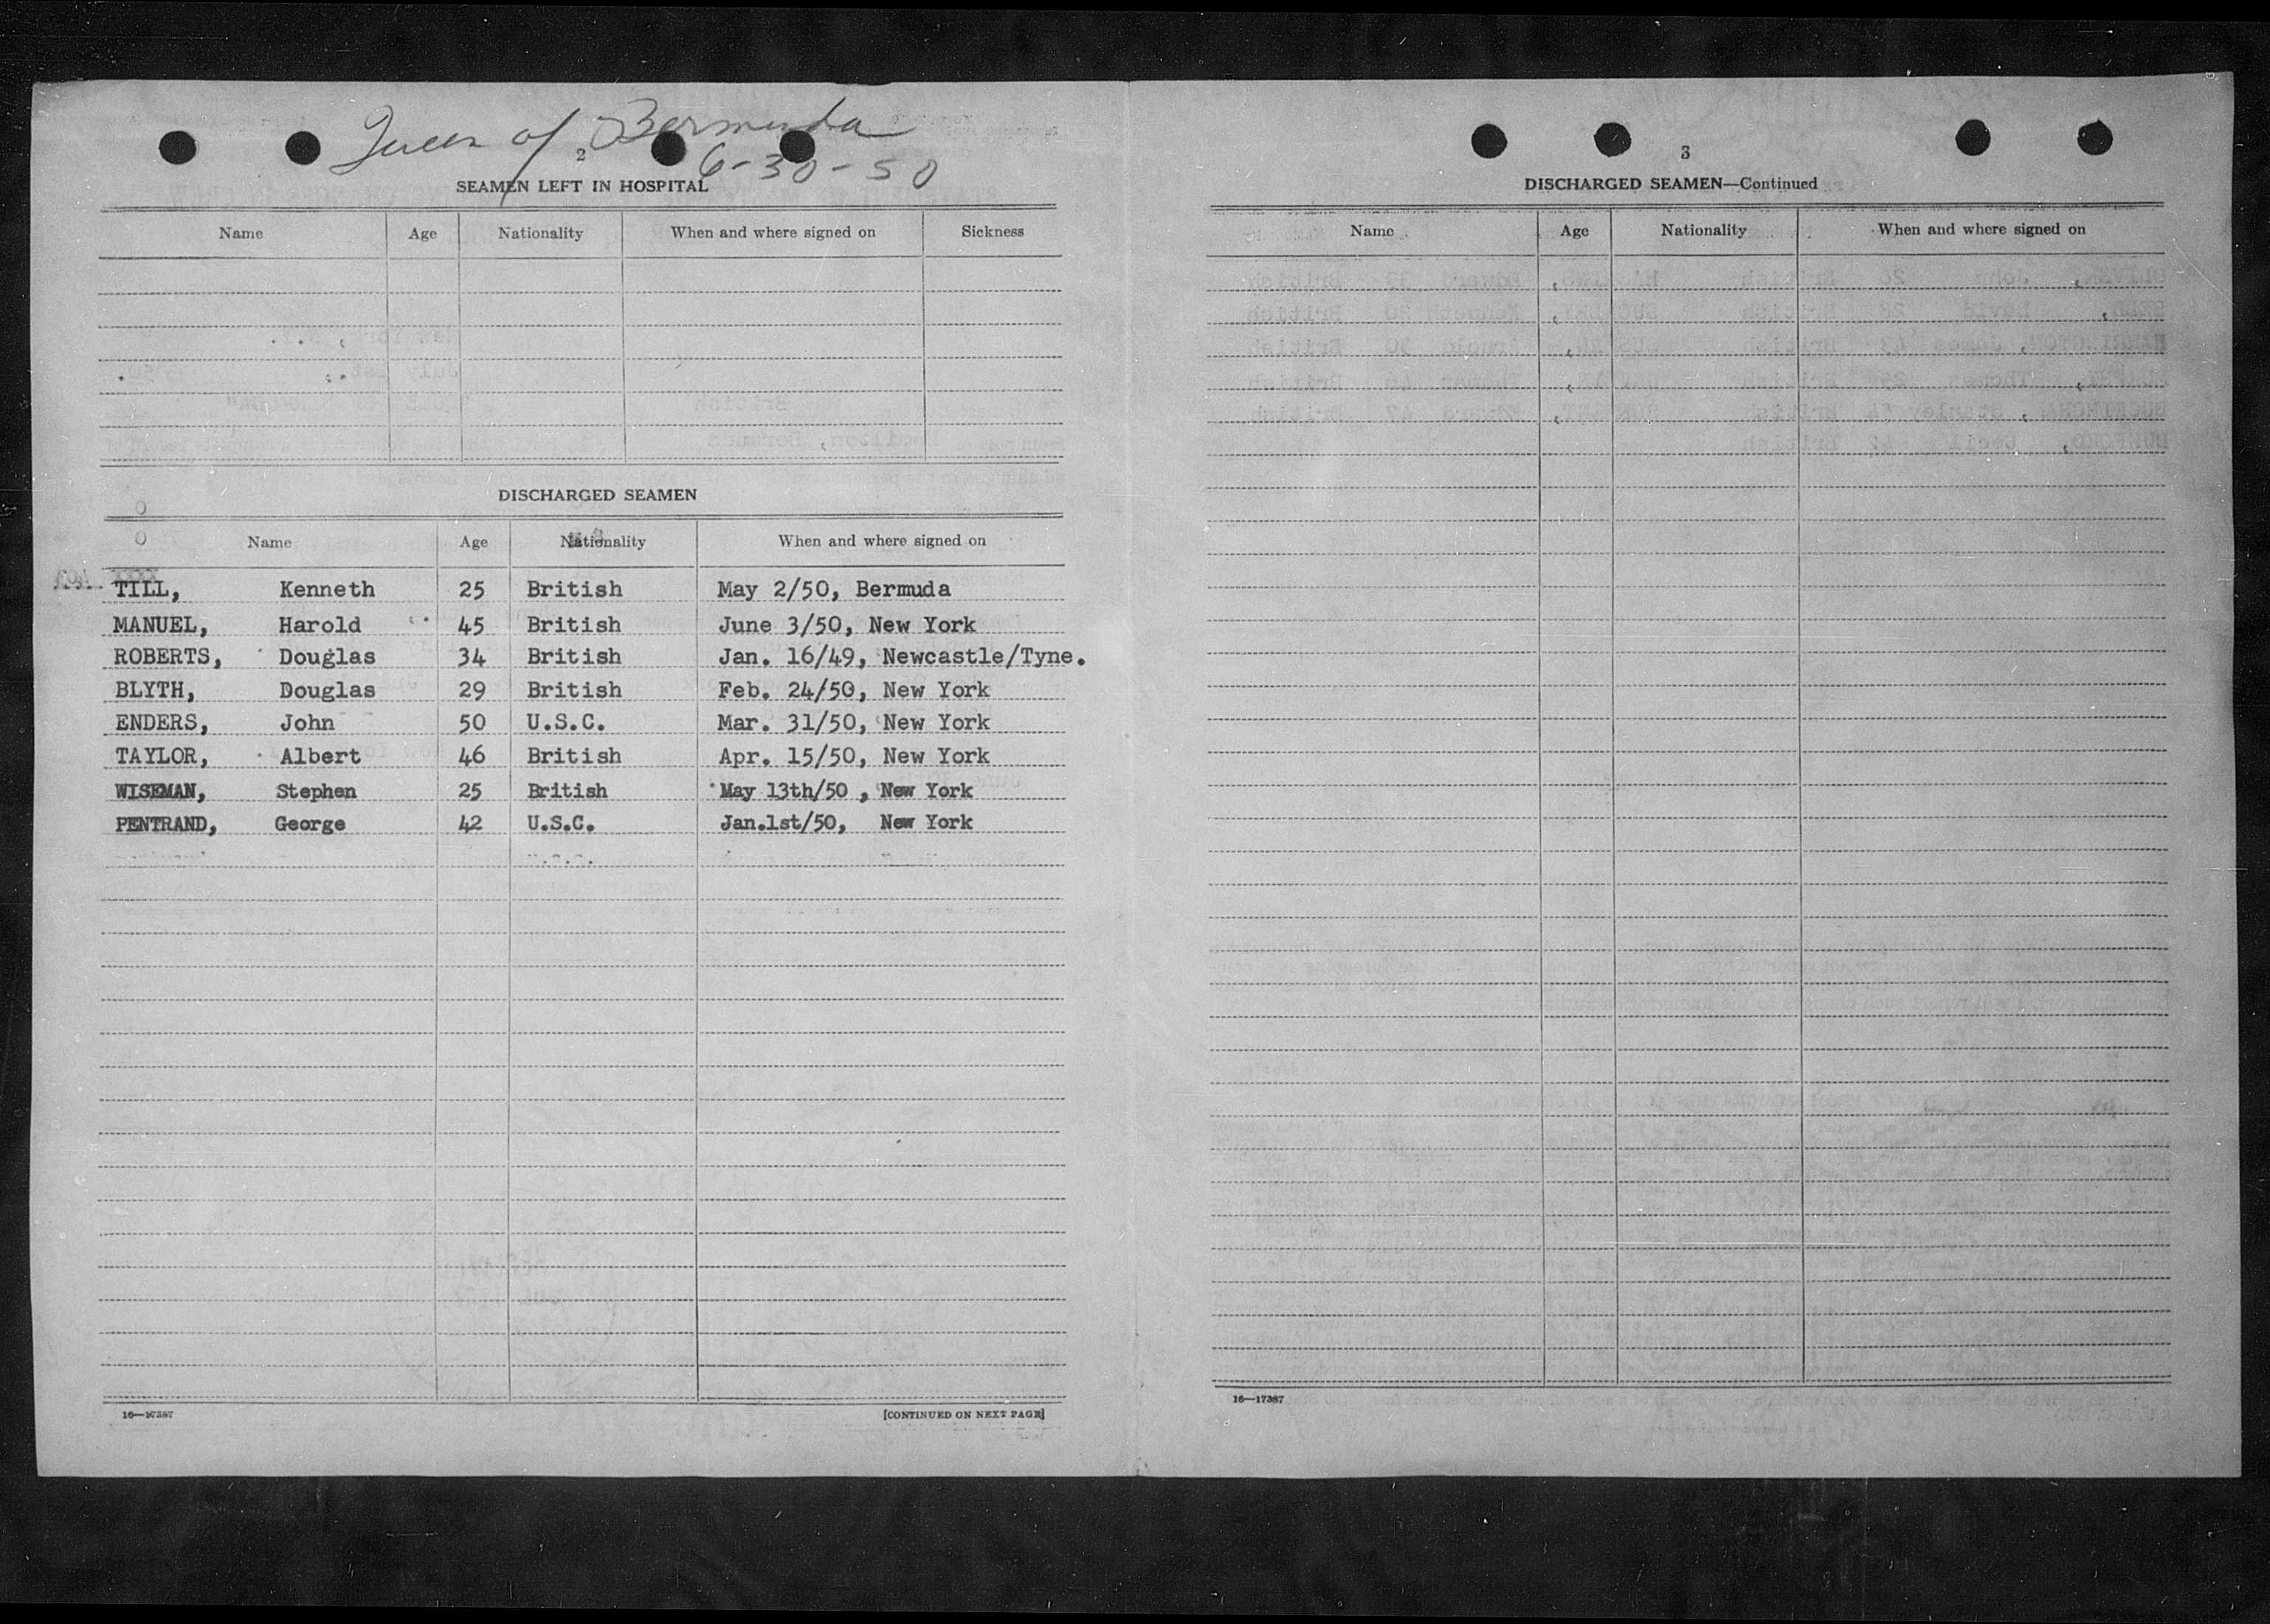 Queen of Bermuda
2
6-30-50
SEAMEN LEFT IN HOSPITAL
Name Age Nationality When and where signed on Sickness
DISCHARGED SEAMEN
Name Age Nationality When and where signed on
TILL, Kenneth 25 British May 2/50, Bermuda
MANUEL, Harold 45 British June 3/50, New York
ROBERTS, Douglas 34 British Jan. 16/49, Newcastle/Tyne.
BLYTH, Douglas 29 British Feb. 24/50, New York
ENDERS, John 50 U.S.C. Mar. 31/50, New York
TAYLOR, Albert 46 British Apr. 15/50, New York
WISEMAN, Stephen 25 British May 13th/50, New York
PENTRAND, George 42 U.S.C. Jan.1st/50, New York
16—17387 [CONTINUED ON NEXT PAGE]
3
DISCHARGED SEAMEN—Continued
Name Age Nationality When and where signed on
16—17387